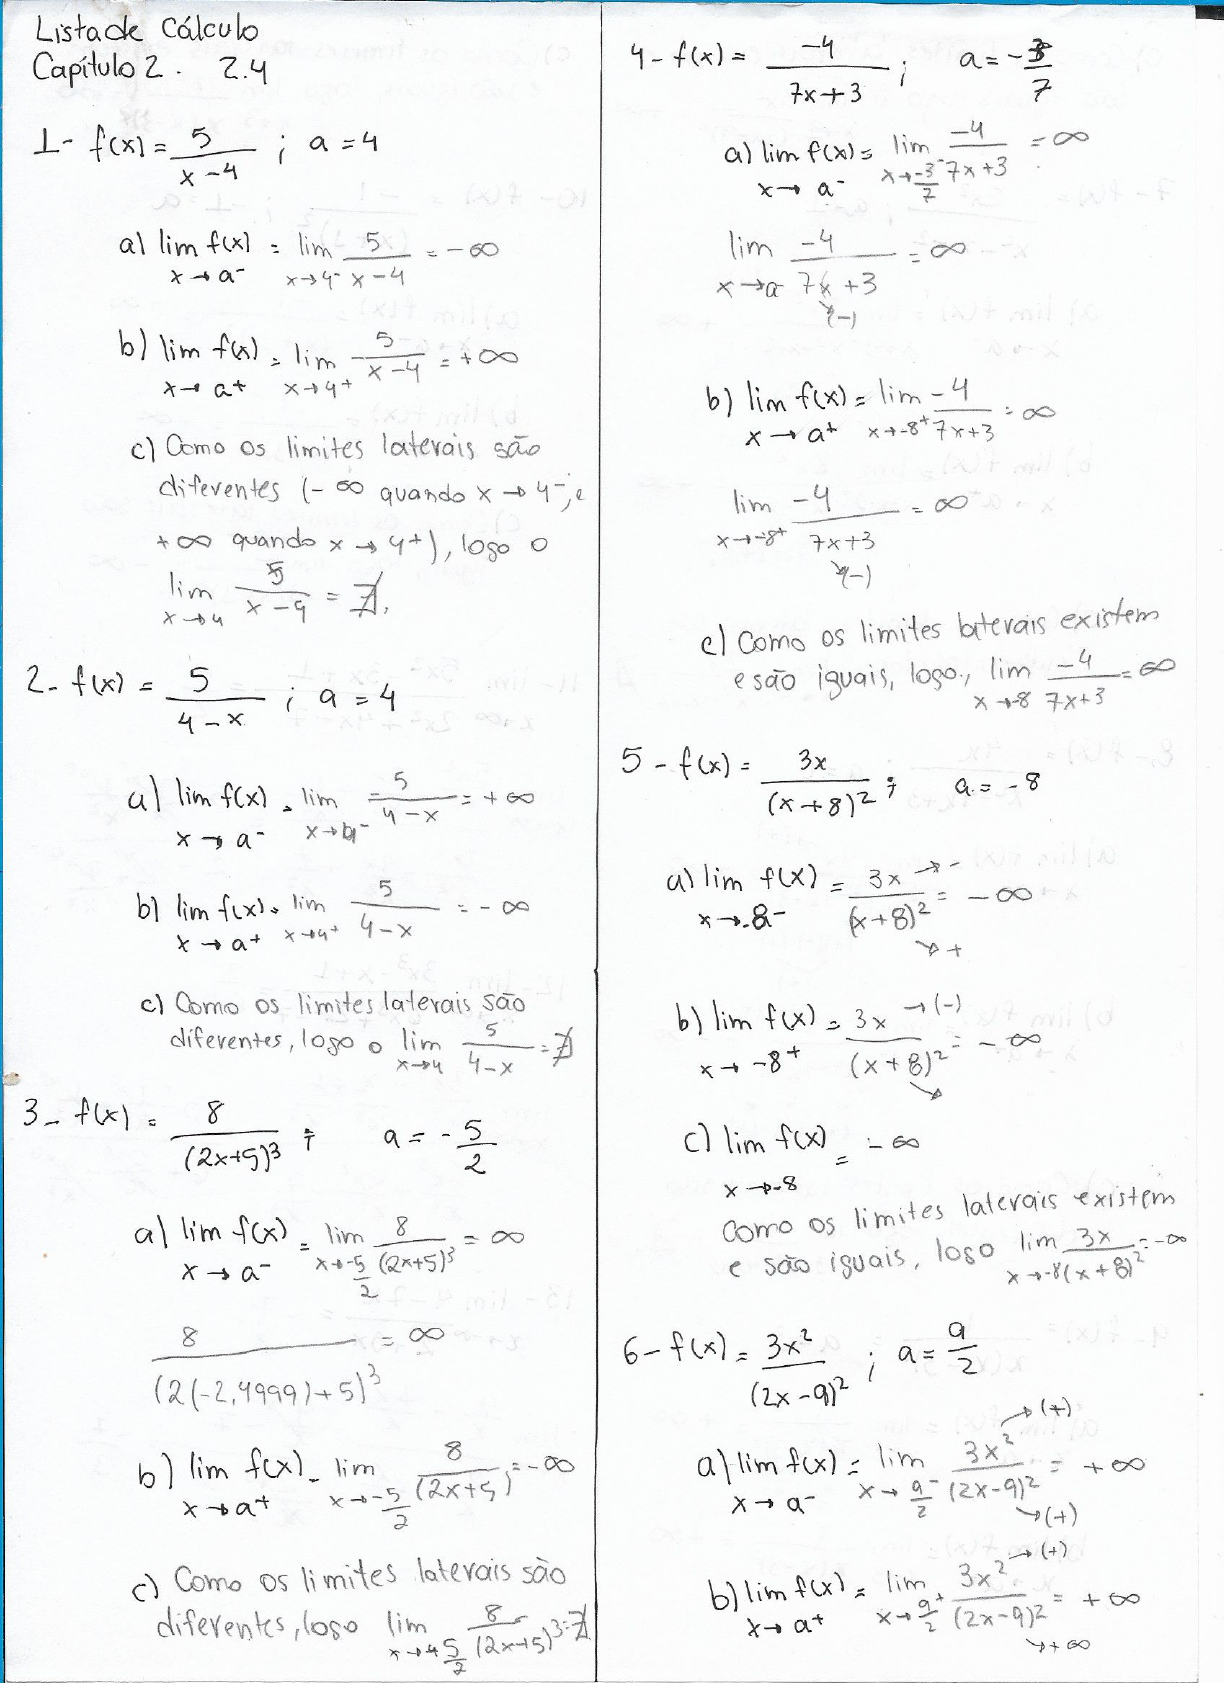 Lista de Cálculo
Capítulo 2. 2.4
1- f(x) = 5/(x-4) ; a = 4
a) lim x→a⁻ f(x) = lim x→4⁻ 5/(x-4) = -∞
b) lim x→a⁺ f(x) = lim x→4⁺ 5/(x-4) = +∞
c) Como os limites laterais são
diferentes (-∞ quando x→4⁻; e
+∞ quando x→4⁺), logo o
lim x→4 5/(x-4) = ∄.
2- f(x) = 5/(4-x) ; a = 4
a) lim x→a⁻ f(x) = lim x→4⁻ 5/(4-x) = +∞
b) lim x→a⁺ f(x) = lim x→4⁺ 5/(4-x) = -∞
c) Como os limites laterais são
diferentes, logo o lim x→4 5/(4-x) = ∄
3- f(x) = 8/(2x+5)³ ; a = -5/2
a) lim x→a⁻ f(x) = lim x→-5/2 8/(2x+5)³ = ∞
8/(2(-2,4999)+5)³ = ∞
b) lim x→a⁺ f(x) = lim x→-5/2 8/(2x+5) = -∞
c) Como os limites laterais são
diferentes, logo lim 8/(2x+5)³ = ∄
4- f(x) = -4/(7x+3) ; a = -3/7
a) lim x→a⁻ f(x) = lim x→-3/7⁻ -4/(7x+3) = ∞
lim x→a⁻ -4/(7x+3) = ∞
(-)
b) lim x→a⁺ f(x) = lim x→-8⁺ -4/(7x+3) = ∞
lim x→-8⁺ -4/(7x+3) = ∞
(-)
c) Como os limites laterais existem
e são iguais, logo, lim x→-8 -4/(7x+3) = ∞
5- f(x) = 3x/(x+8)² ; a = -8
a) lim x→-8⁻ f(x) = 3x→-/(x+8)²→+ = -∞
b) lim x→-8⁺ f(x) = 3x→(-)/(x+8)²→ = -∞
c) lim x→-8 f(x) = -∞
Como os limites laterais existem
e são iguais, logo lim x→-8 3x/(x+8)² = -∞
6- f(x) = 3x²/(2x-9)² ; a = 9/2
a) lim x→a⁻ f(x) = lim x→9/2⁻ 3x²→(+)/(2x-9)²→(+) = +∞
b) lim x→a⁺ f(x) = lim x→9/2⁺ 3x²→(+)/(2x-9)²→+∞ = +∞